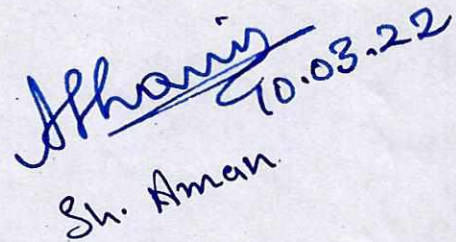 10.03.22
Sh. Aman